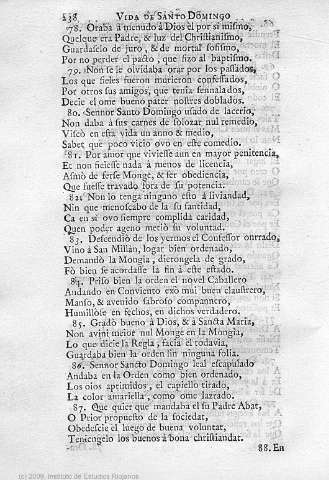 238 VIDA DE SANTO DOMINGO
78. Oraba à menudo à Dios èl por si mismo,
Quelque era Padre, & luz del Christianismo,
Guardaselo de juro, & de mortal sofismo,
Por no perder el pacto, que fizo al baptismo.
79. Non se le olvidaba orar por los passados,
Los que fieles fueron murieron confessados,
Por otros sus amigos, que tenìa sennalados,
Decie el ome bueno pater nostres doblados.
80. Sennor Santo Domingo usado de lacerio,
Non daba à sus carnes de folgar nul remedio,
Visco en esta vida un anno & medio,
Sabet que poco vicio ovo en este comedio.
81. Por amor que viviesse aun en mayor penitencia,
Et non ficiesse nada à menos de licencia,
Asmò de ferse Monge, & fer obediencia,
Que fuesse travado fora de su potencia.
82. Non lo tenga ninguno esto à liviandad,
Nin que menoscabo de la su santidad,
Ca en si ovo siempre complida caridad,
Quen poder ageno metiò su voluntad.
83. Descendiò de los yermos el Confessor onrrado,
Vino à San Millàn, logar bien ordenado,
Demandò la Mongìa, dierongela de grado,
Fò bien se acordasse la fin à este estado.
84. Priso bien la orden el novel Caballero
Andando en Conviento exò mui buen claustrero,
Manso, & avenido sabroso compannero,
Humildòse en fechos, en dichos verdadero.
85. Gradò bueno à Dios, & à Sancta Maria,
Non avini meior nul Monge en la Mongìa,
Lo que dicie la Regla, facia èl todavia,
Guardaba bien la orden sin ninguna folia.
86. Sennor Sancto Domingo leal escapulado
Andaba en la Orden como bien ordenado,
Los oios aprimidos, el capiello tirado,
La color amariella, como ome lazrado.
87. Que quier que mandaba el su Padre Abat,
O Prior propuesto de la sociedat,
Obedescie el luego de buena voluntat,
Teniengelo los buenos à bona christiandat.
88. En
(c) 2009, Instituto de Estudios Riojanos